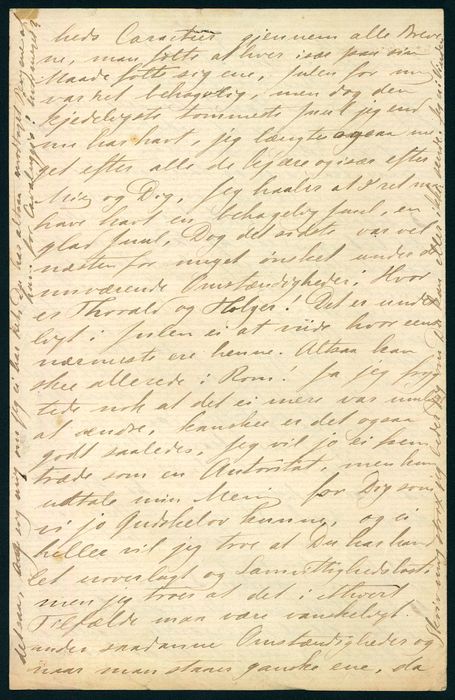 heds Caracteer gjennem alle Breve
ne, man følte at hver især paa sin
Maade følte sig ene, Julen for mig
var ret behagelig, men dog den
kjedeligste tommeste Juul jeg end
nu har havt, jeg længtes ogsaa me
get efter alle de kjære og især efter
Mig og Dig, Jeg haaber at I ret maa
have havt en behagelig Juul, en
glad Juul, Dog det sidste var vel
næsten for meget ønsket under de
nuværende Omstændigheder! Hvor
er Thorald og Holger! Det er underligt
i Julen ei at vide hvor eens
nærmeste ere henne. Altsaa kan
skee allerede i Rom! Ja jeg fryg
tede nok at det ei mere var muligt
at ændre, kanskee er det ogsaa
godt saaledes, jeg vil jo ei frem
træde som en Autoritæt, men kun
udtale min Mening for Dig som
vi jo Gudskelov kunne, og ei
heller vil jeg troe at Du har hand
let uoverlagt og Samvittighedsløst
men jeg troer at det i ethvert
Tilfælde maa være vanskeligt
under saadanne Omstændigheder og
naar man staaer ganske ene, da
det saa, og mig om jeg ei har Ret, Du har altsaa modtaget